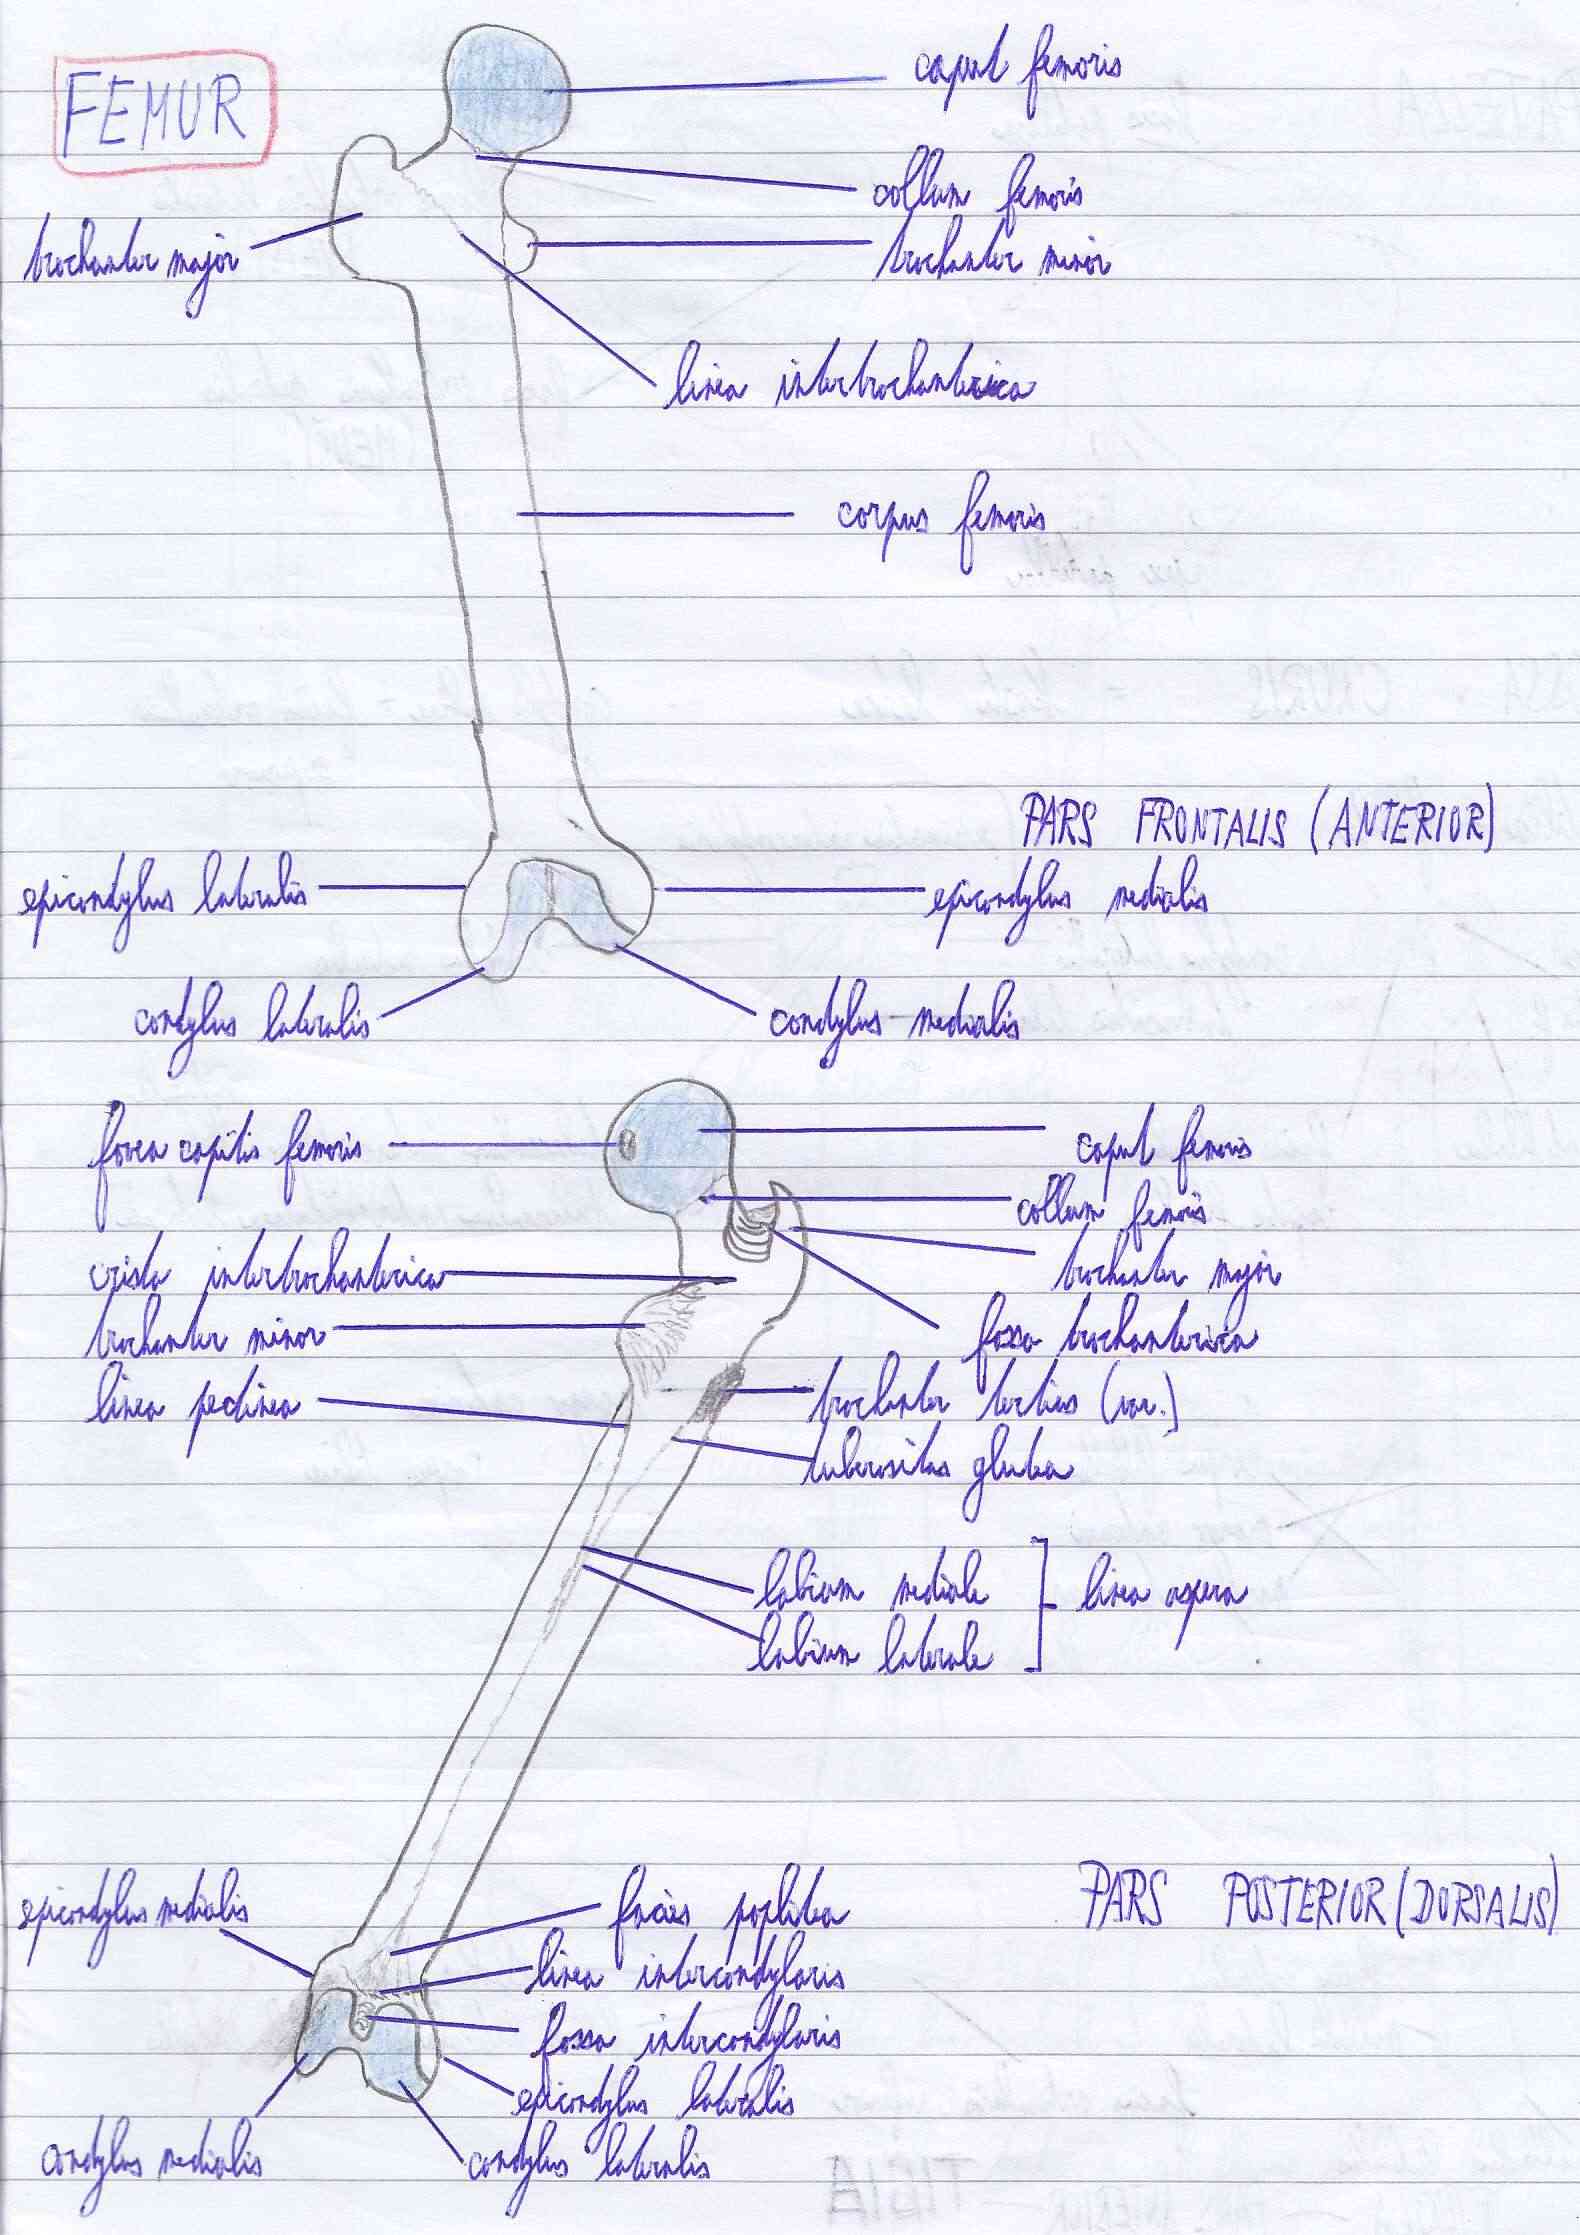 FEMUR
caput femoris
collum femoris
trochanter major
trochanter minor
linea intertrochanterica
corpus femoris
PARS FRONTALIS (ANTERIOR)
epicondylus lateralis
epicondylus medialis
condylus lateralis
condylus medialis
fovea capitis femoris
caput femoris
collum femoris
crista intertrochanterica
trochanter major
trochanter minor
fossa trochanterica
linea pectinea
trochanter tertius (var.)
tuberositas glutea
labium mediale
linea aspera
labium laterale
epicondylus medialis
facies poplitea
PARS POSTERIOR (DORSALIS)
linea intercondylaris
fossa intercondylaris
epicondylus lateralis
condylus medialis
condylus lateralis
TIBIA